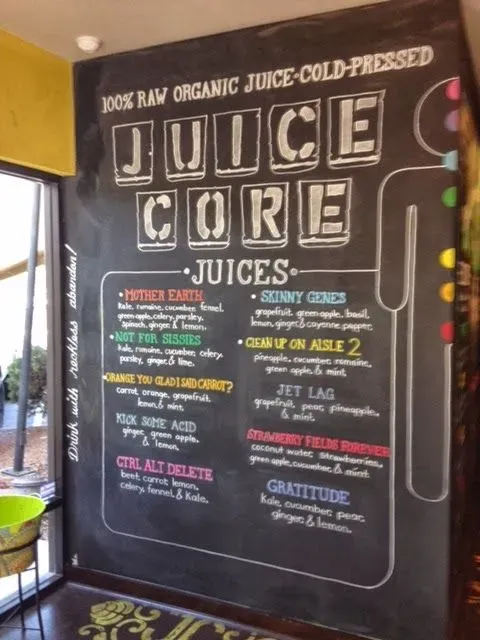 100% RAW ORGANIC JUICE-COLD-PRESSED
JUICE
CORE
JUICES
• MOTHER EARTH
Kale, romaine, cucumber, fennel,
green apple, celery, parsley,
spinach, ginger & lemon.
• NOT FOR SISSIES
Kale, romaine, cucumber, celery,
parsley, ginger & lime.
• ORANGE YOU GLAD I SAID CARROT?
carrot, orange, grapefruit,
lemon & mint.
KICK SOME ACID
ginger, green apple,
& lemon.
CTRL ALT DELETE
beet, carrot, lemon,
celery, fennel, & Kale.
• SKINNY GENES
grapefruit, green apple, basil,
lemon, ginger & cayenne pepper.
• CLEAN UP ON AISLE 2
pineapple, cucumber, romaine,
green apple & mint.
JET LAG
grapefruit, pear, pineapple,
& mint.
STRAWBERRY FIELDS FOREVER
coconut water, strawberries,
green apple, cucumber & mint.
GRATITUDE
Kale, cucumber, pear,
ginger & lemon.
Drink with reckless abandon!